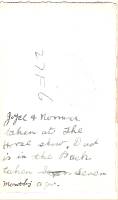 277-6
& Norman
taken at The
Horse show, Dad
is in the Back
taken seven
months ago.